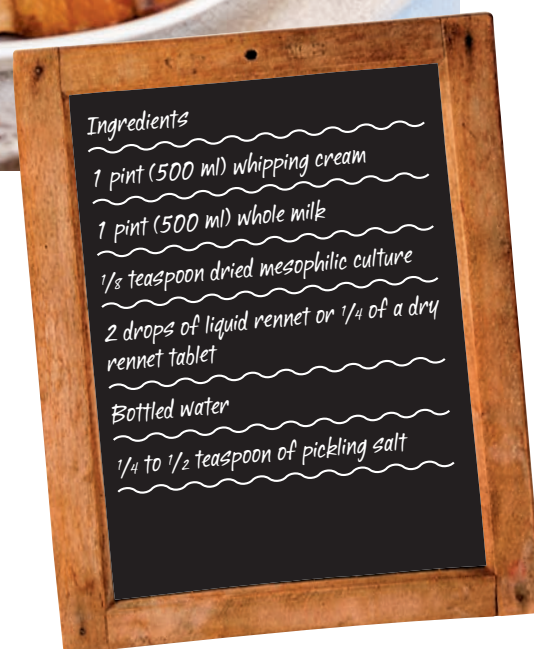 Ingredients
1 pint (500 ml) whipping cream
1 pint (500 ml) whole milk
1/8 teaspoon dried mesophilic culture
2 drops of liquid rennet or 1/4 of a dry
rennet tablet
Bottled water
1/4 to 1/2 teaspoon of pickling salt